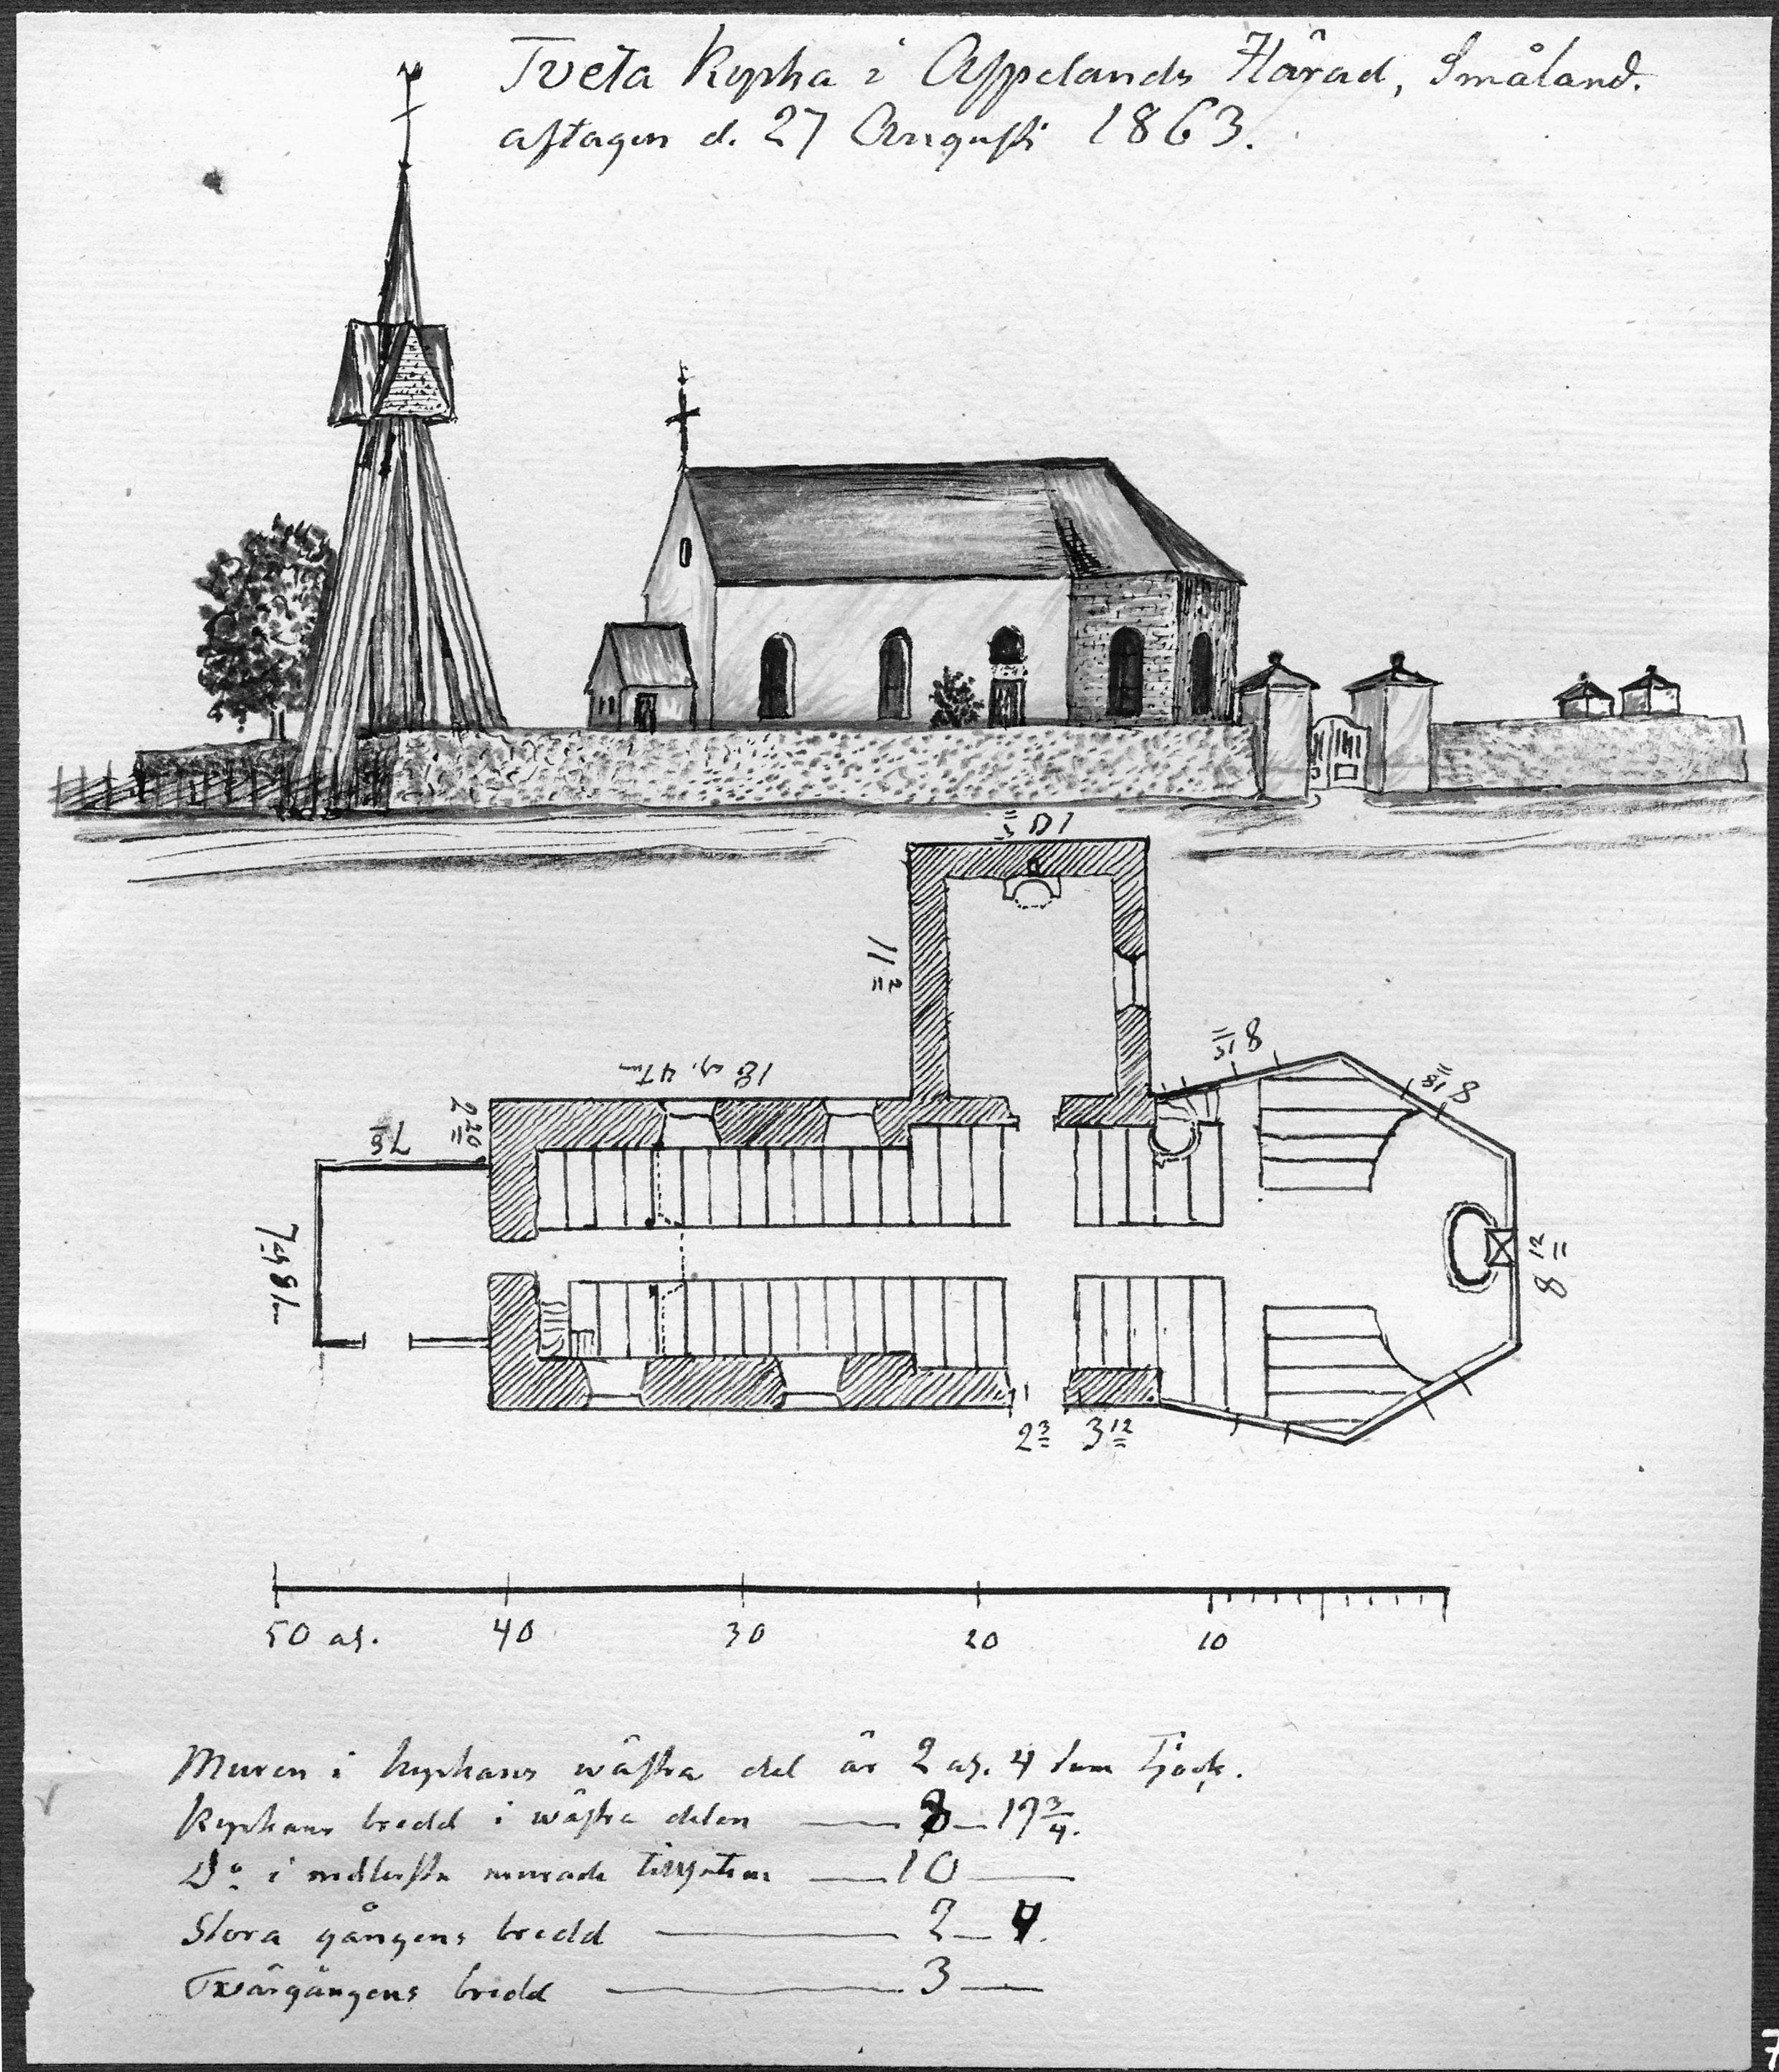 Tveta Kyrka i Aspelands Härad, Småland.
aftagen d. 27 Augusti 1863.
10
11 2
18 al. 4 tum
2 20
7 5
7 al 8 tum
8 15
8 18
8 12
2 3
3 12
50 al. 40 30 20 10
Muren i kyrkans wästra del är 2 al. 4 tum tjock.
Kyrkans bredd i wästra delen — 8 — 17 3/4.
Do i murade — 10 —
Stora gångens bredd — 2 — 4.
Twärgångens bredd — 3 —
7